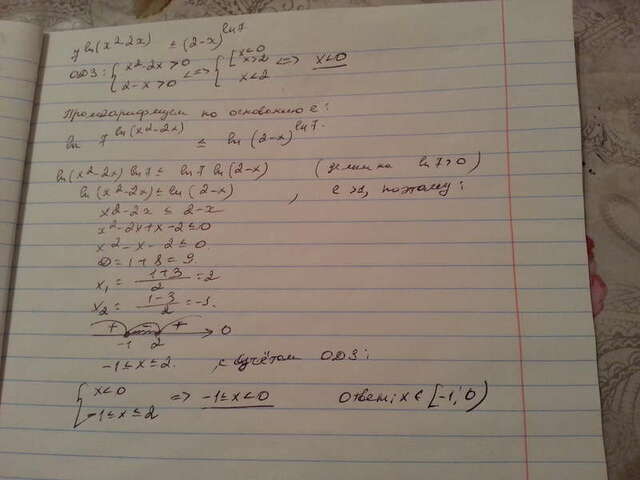 7^ln(x²-2x) ≤ (2-x)^ln7
ОДЗ: { x²-2x>0 2-x>0 <=> { [ x<0 x>2 x<2 <=> x<0
Прологарифмуем по основанию е:
ln 7^ln(x²-2x) ≤ ln (2-x)^ln7.
ln(x²-2x) ln7 ≤ ln7 ln(2-x) (делим на ln7>0)
ln(x²-2x) ≤ ln(2-x) , e>1, поэтому:
x²-2x ≤ 2-x
x²-2x+x-2≤0
x²-x-2≤0.
D=1+8=9.
x₁ = (1+3)/2 = 2
x₂ = (1-3)/2 = -1.
+ - +
-1 2 0
-1≤x≤2. , с учётом ОДЗ:
{ x<0 -1≤x≤2 => -1≤x<0 Ответ: x∈[-1; 0)